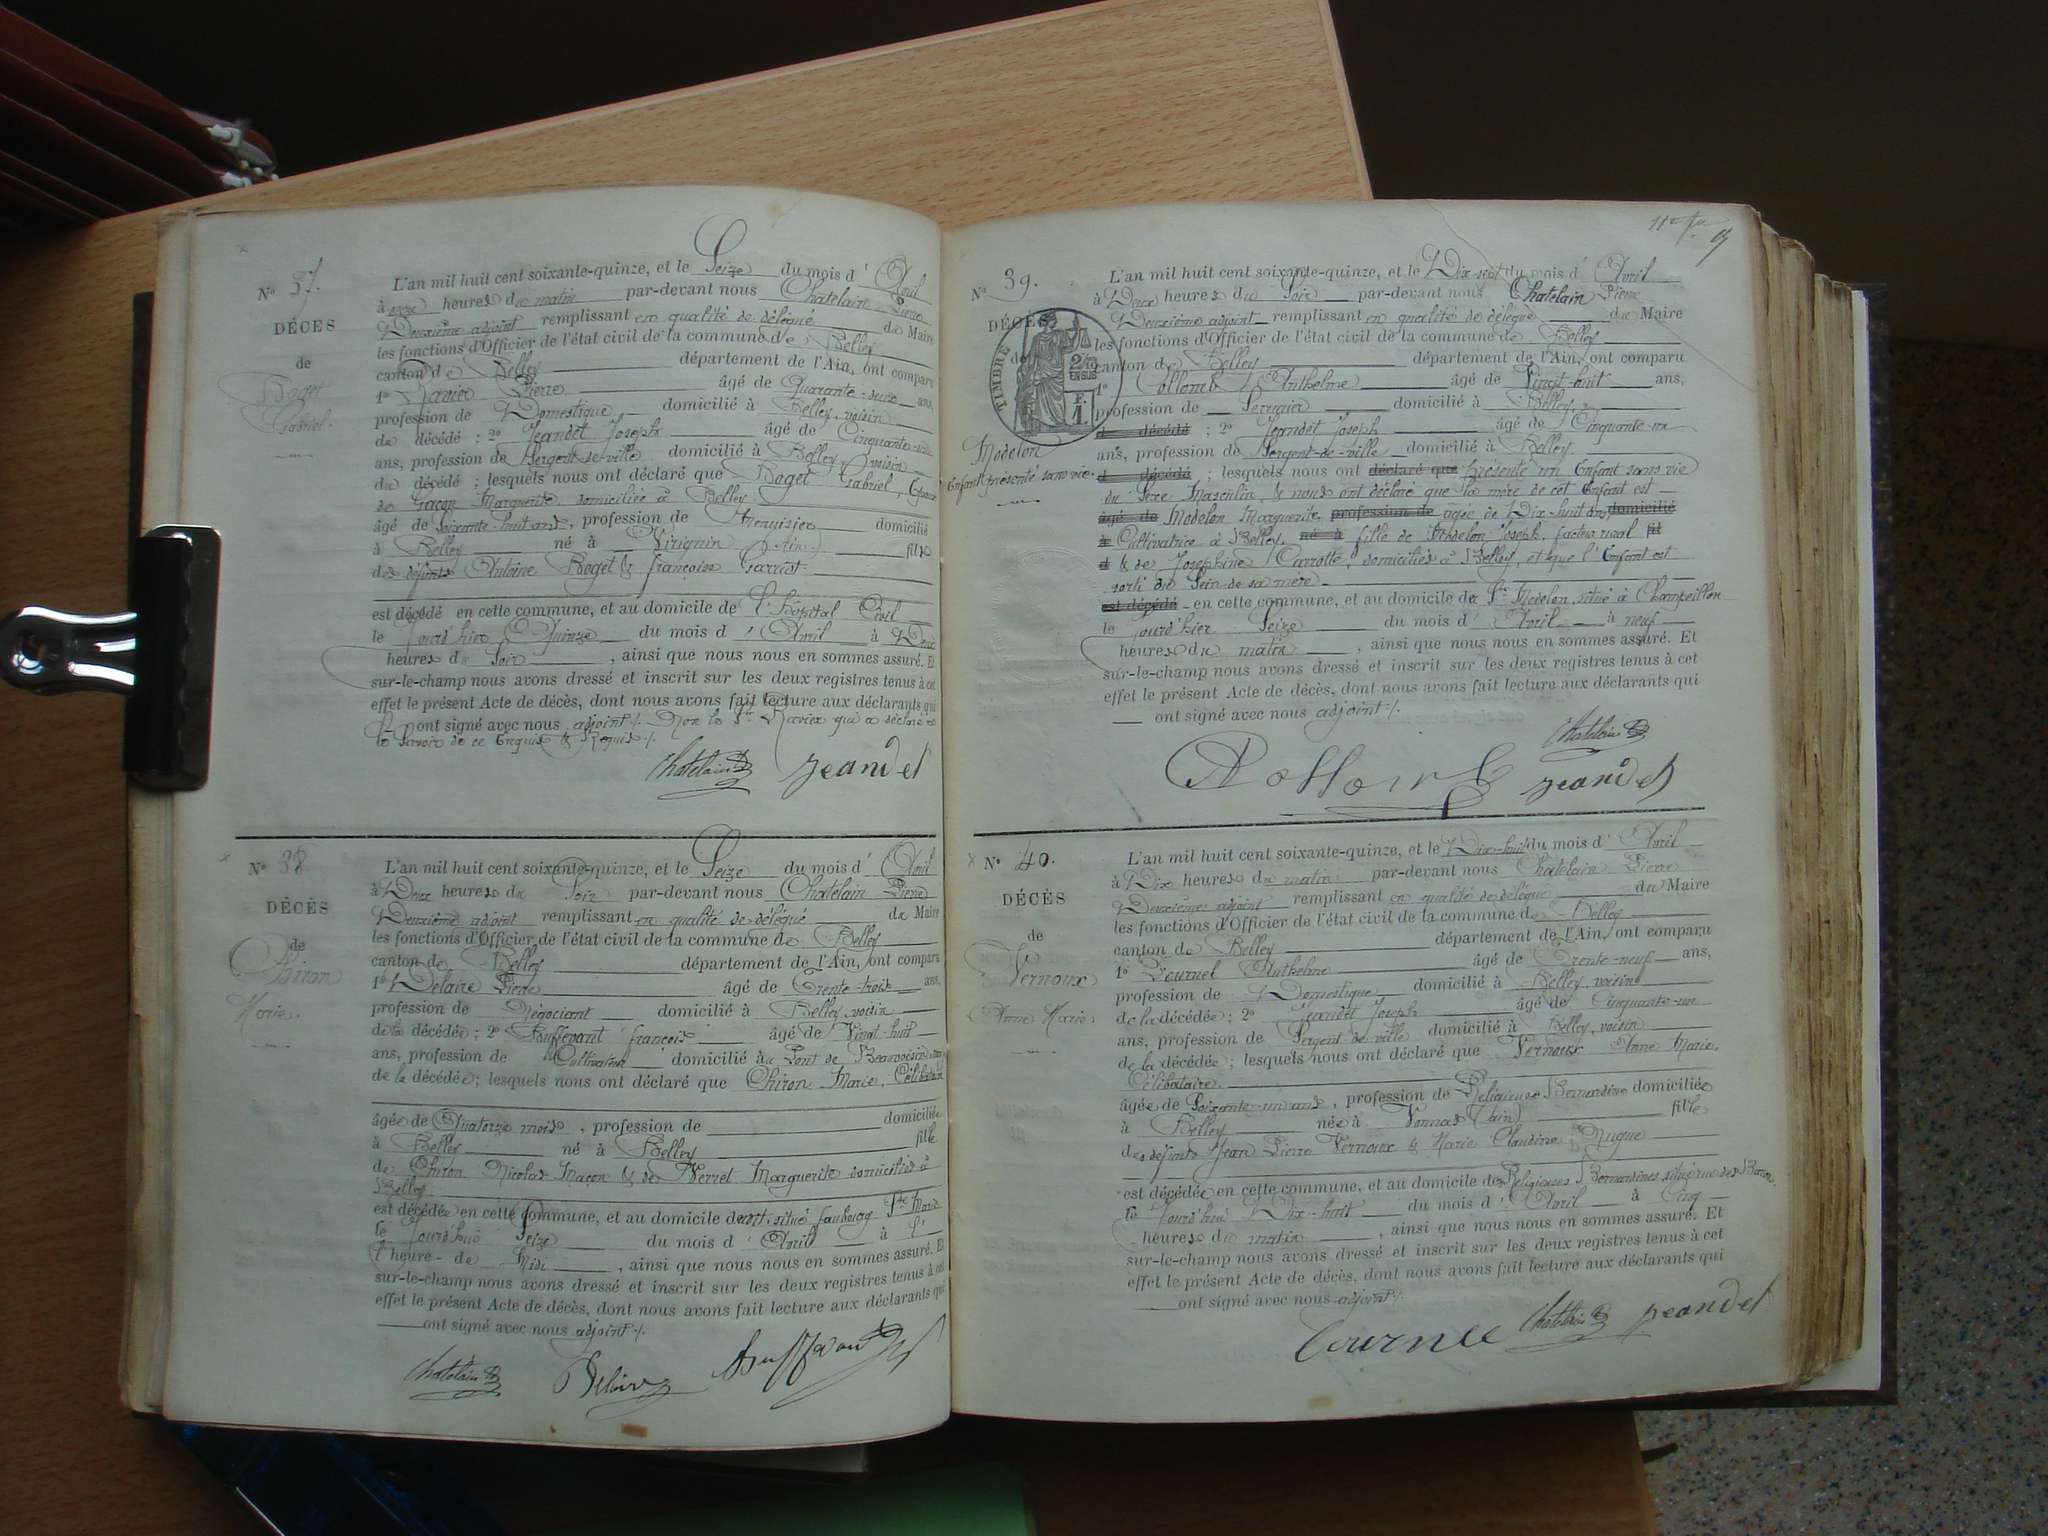 N° 37.
DÉCES
de
Boget
Gabriel.
L'an mil huit cent soixante-quinze, et le Seize du mois d'Avril
à onze heures du matin par-devant nous Chatelain Pierre
Deuxième adjoint remplissant en qualité de délégué du Maire
les fonctions d'Officier de l'état civil de la commune de Belley
canton de Belley département de l'Ain, ont comparu
1° Pierre âgé de ans,
profession de Domestique domicilié à Belley, voisin
du décédé ; 2° Jeandet Joseph âgé de Cinquante-un
ans, profession de Sergent-de-ville domicilié à Belley, voisin
du décédé ; lesquels nous ont déclaré que Boget Gabriel, Epoux
de Gacon Marguerite domiciliée à Belley
âgé de Soixante-huit ans, profession de Menuisier domicilié
à Belley né à Virignin (Ain) fils
des défunts Antoine Boget & françoise
est décédé en cette commune, et au domicile de l'hôpital Civil
le jourd'hier Quinze du mois d'Avril à Deux
heures du Soir, ainsi que nous nous en sommes assuré. Et
sur-le-champ nous avons dressé et inscrit sur les deux registres tenus à cet
effet le présent Acte de décès, dont nous avons fait lecture aux déclarants qui
ont signé avec nous adjoint. Non le Sr qui a déclaré ne
le Savoir de ce Enquis & Requis.
Chatelain Jeandet
N° 38
DÉCÈS
de
Chiron
Marie.
L'an mil huit cent soixante-quinze, et le Seize du mois d'Avril
à Deux heures du Soir par-devant nous Chatelain Pierre
Deuxième adjoint remplissant en qualité de délégué du Maire
les fonctions d'Officier de l'état civil de la commune de Belley
canton de Belley département de l'Ain, ont comparu
1° Delaire Pierre âgé de Trente-trois ans,
profession de Négociant domicilié à Belley, voisin
de la décédée ; 2° Bouffevant françois âgé de Vingt-huit
ans, profession de Cultivateur domicilié à Pont de Beauvoisin
de la décédée ; lesquels nous ont déclaré que Chiron Marie, Célibataire
âgée de Quatorze mois, profession de domiciliée
à Belley né à Belley fille
de Chiron Nicolas Maçon & de Verret Marguerite domiciliés à
Belley.
est décédée en cette commune, et au domicile situé faubourg St Martin
le jourd'hui Seize du mois d'Avril à l'
heure de Midi, ainsi que nous nous en sommes assuré. Et
sur-le-champ nous avons dressé et inscrit sur les deux registres tenus à cet
effet le présent Acte de décès, dont nous avons fait lecture aux déclarants qui
ont signé avec nous adjoint.
Chatelain Delaire
N° 39.
DÉCES
de
TIMBRE
2/10
EN SUS
F.
1.
Modelon
Enfant présenté sans vie.
L'an mil huit cent soixante-quinze, et le Dix-sept du mois d'Avril
à Deux heures du Soir par-devant nous Chatelain Pierre
Deuxième adjoint remplissant en qualité de délégué du Maire
les fonctions d'Officier de l'état civil de la commune de Belley
canton de Belley département de l'Ain, ont comparu
1° Collomb Anthelme âgé de Vingt-huit ans,
profession de Serrurier domicilié à Belley
d décédé ; 2° Jeandet Joseph âgé de Cinquante-un
ans, profession de Sergent-de-ville domicilié à Belley
d décédé ; lesquels nous ont déclaré que présenté un Enfant sans vie
du Sexe Masculin, & nous ont déclaré que la mère de cet Enfant est
âgé de Modelon Marguerite, profession de agée de Dix-huit ans, domicilié
à Cultivatrice à Belley, né à fille de Modelon Joseph, facteur rural fil
d & de Josephine Carrotte, domiciliés à Belley, et que l'Enfant est
sorti du Sein de sa mère
est décédé en cette commune, et au domicile du Sr Modelon situé à Champeillon
le jourd'hier Seize du mois d'Avril à neuf
heures du matin, ainsi que nous nous en sommes assuré. Et
sur-le-champ nous avons dressé et inscrit sur les deux registres tenus à cet
effet le présent Acte de décès, dont nous avons fait lecture aux déclarants qui
ont signé avec nous adjoint.
Chatelain
Jeandet
N° 40.
DÉCÈS
de
Vernoux
Anne Marie.
L'an mil huit cent soixante-quinze, et le Dix-huit du mois d'Avril
à Dix heures du matin par-devant nous Chatelain Pierre
Deuxième adjoint remplissant en qualité de délégué du Maire
les fonctions d'Officier de l'état civil de la commune de Belley
canton de Belley département de l'Ain, ont comparu
1° Anthelme âgé de Trente-neuf ans,
profession de Domestique domicilié à Belley, voisin
de la décédée ; 2° Jeandet Joseph âgé de Cinquante-un
ans, profession de Sergent de ville domicilié à Belley, voisin
de la décédée ; lesquels nous ont déclaré que Vernoux Anne Marie,
Célibataire.
âgée de Soixante-un ans, profession de Religieuse Bernardine domiciliée
à Belley née à Vonnas (ain) fille
des défunts Jean Pierre Vernoux & Marie Claudine Nugue
est décédée en cette commune, et au domicile des Religieuses Bernardines situé rue des Barons
le jourd'hui Dix-huit du mois d'Avril à Cinq
heures du matin, ainsi que nous nous en sommes assuré. Et
sur-le-champ nous avons dressé et inscrit sur les deux registres tenus à cet
effet le présent Acte de décès, dont nous avons fait lecture aux déclarants qui
ont signé avec nous adjoint.
Chatelain Jeandet